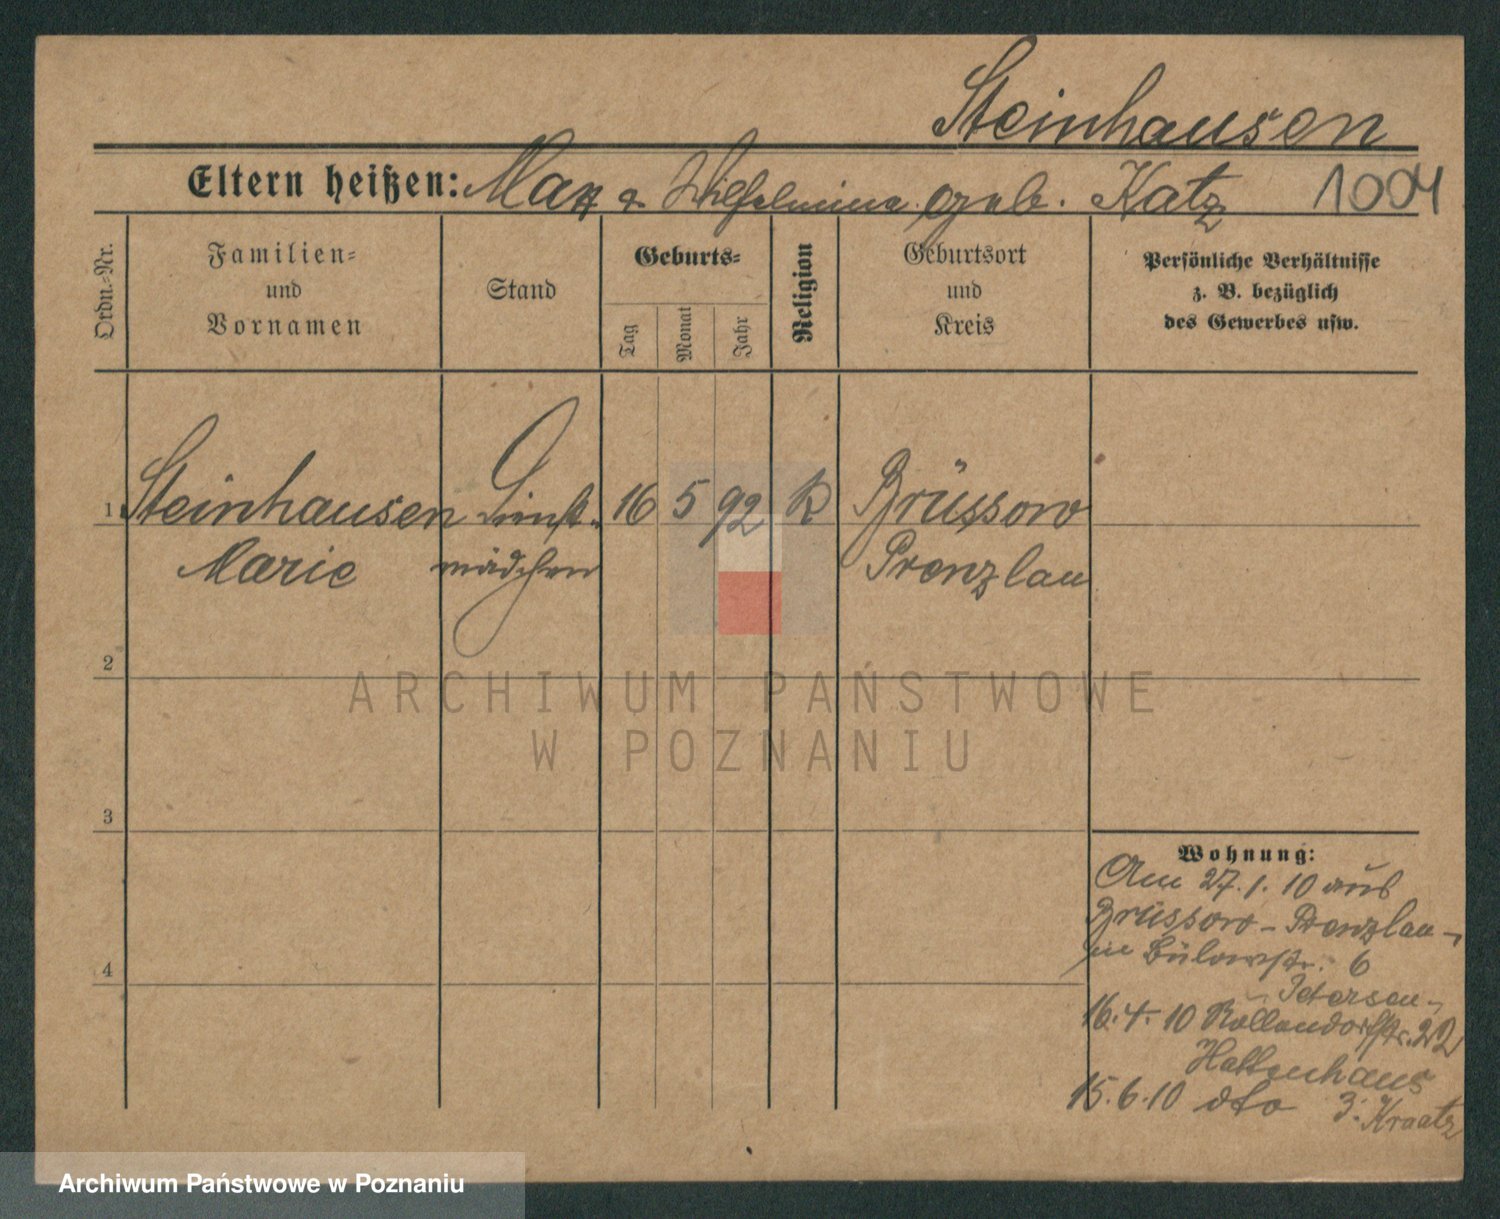 Steinhausen
Eltern heißen: Max & Wilhelmine geb. Katz 1004
Ordn.-Nr.
Familien-
und
Vornamen
Stand
Geburts-
Tag
Monat
Jahr
Religion
Geburtsort
und
Kreis
Persönliche Verhältnisse
z. B. bezüglich
des Gewerbes usw.
1 Steinhausen Dienst- 16 5 92 K Brüssow
Marie mädchen Prenzlau
2
3
4
Wohnung:
Am 27.1.10 aus
Brüssow - Prenzlau -
in Bülowstr. 6
Petersen,
16.4.10 Rollendorfstr. 22
Hattenhaus
15.6.10 dto 3. Kraatz
ARCHIWUM PAŃSTWOWE
W POZNANIU
Archiwum Państwowe w Poznaniu